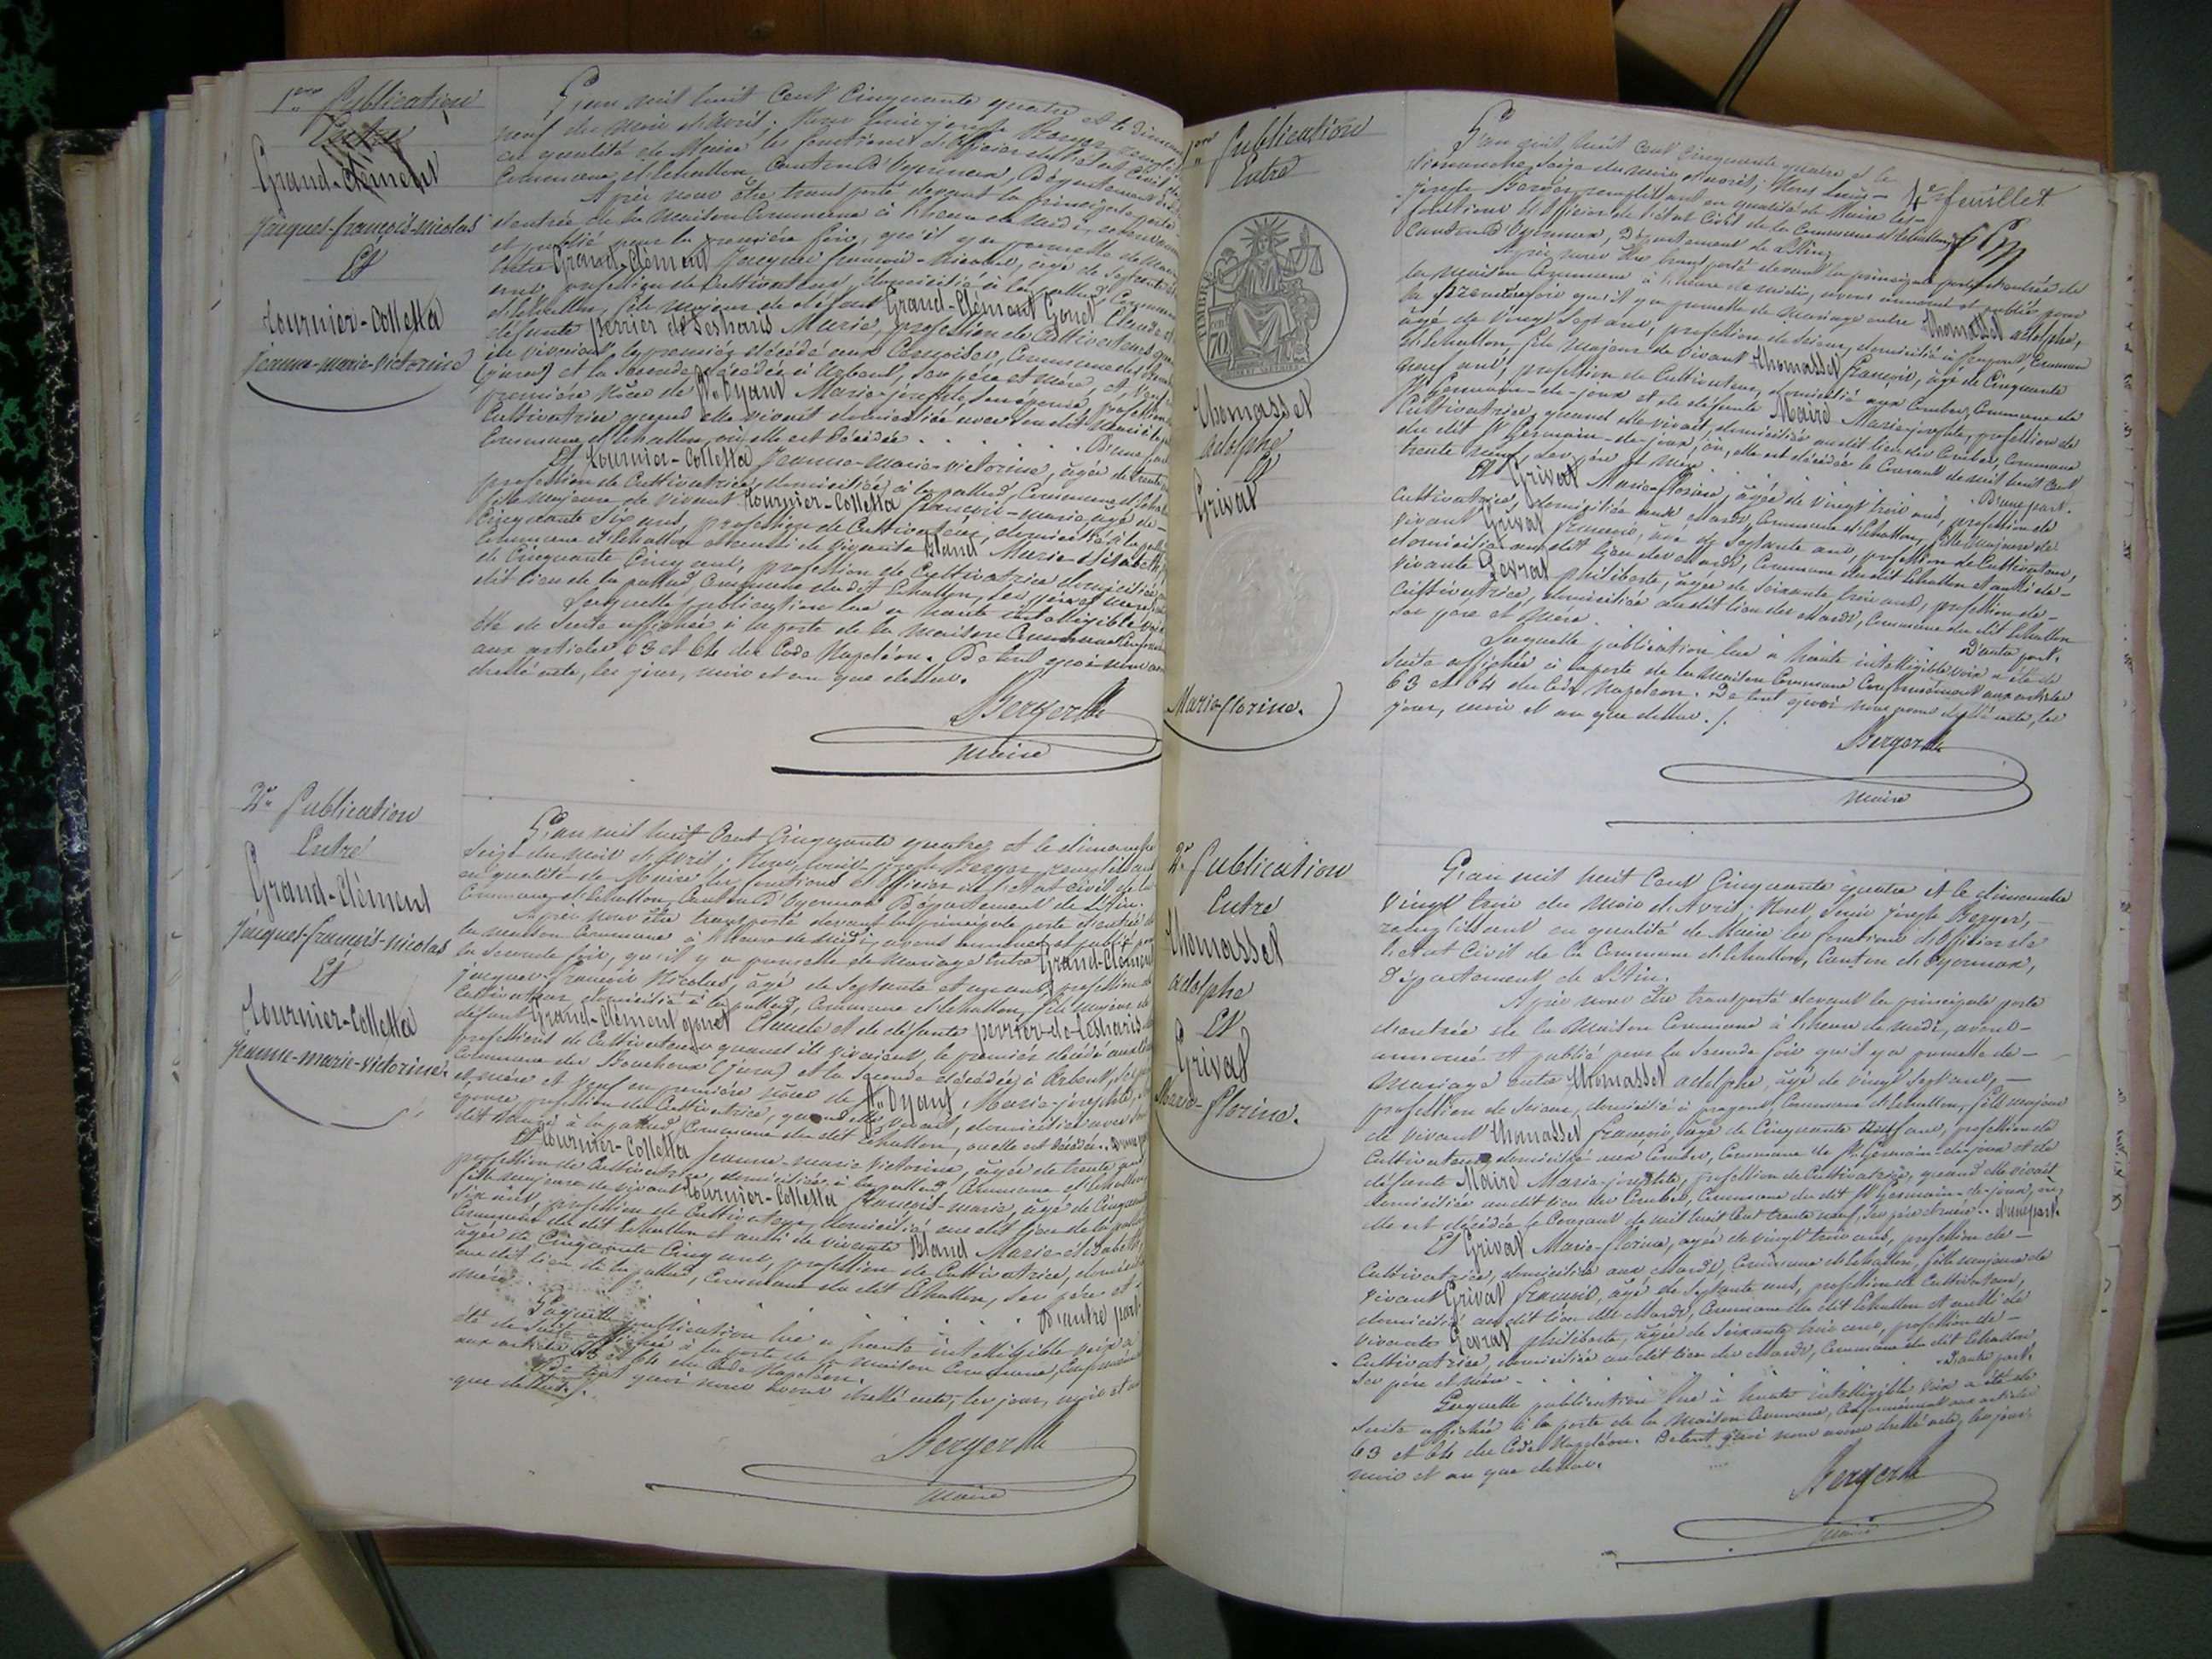 1ère Publication
Entre
Grand-Clément
Jacques-françois-nicolas
Et
Tournier-Colletta
Jeanne-marie-victorine
L'an mil huit Cent Cinquante quatre et le dimanche
neuf du mois d'Avril; Nous Louis-joseph Berger remplissant
en qualité de Maire les fonctions d'officier de l'état Civil de la
Commune d'Echallon, Canton d'Oyonnax, Département de
Après nous être transporté devant la principale porte
d'entrée de la Maison Commune à l'heure de midi, avons
et publié pour la première fois, qu'il y a promesse de
Entre Grand-Clément Jacques françois-Nicolas, âgé de Septante et
ans, profession de Cultivateur, domicilié à la pallud, Commune
d'Echallon, fils majeur de défunt Grand-Clément Gonet Claude et
défunte perrier de Lesharis Marie, profession de Cultivateurs quand
ils vivaient, le premier décédé aux Commune des
(jura) et la Seconde décédée à Arbent, Ses père et mère, et Veuf
première Nôce de St. Oyant Marie-josephte, Son épouse, profession
Cultivatrice quand elle vivait domiciliée avec Son dit
Commune d'Echallon, où elle est décédée . . . . D'une part
Et Tournier-Colletta Jeanne-Marie-victorine, âgée de trente
profession de Cultivatrice, domiciliée à la pallud, Commune d'Echallon
fille majeure de vivant Tournier-Colletta François-marie, âgé de
Cinquante Six ans, profession de Cultivateur, domicilié à la pallud
Commune d'Echallon et aussi de vivante Bland Marie-Elisabeth
de Cinquante Cinq ans, profession de Cultivatrice domiciliée au
dit lieu de la pallud, Commune du dit Echallon, Ses père et mère
Laquelle publication lue à haute intelligible voix
été de Suite affichée à la porte de la Maison Commune
aux articles 63 et 64 du Code Napoléon. De tout quoi nous avons
dressé acte, les jour, mois et an que dessus.
Berger
Maire
2e Publication
Entre
Grand-Clément
Jacques-françois-nicolas
Et
Tournier-Colletta
Jeanne-marie-victorine.
L'an mil huit Cent Cinquante quatre et le dimanche
Seize du mois d'Avril; Nous, Louis-joseph Berger remplissant
en qualité de Maire les fonctions d'officier de l'état civil de la
Commune d'Echallon, Canton d'Oyonnax Département de L'Ain.
Après nous être transporté devant la principale porte d'entrée de
la maison Commune à l'heure de midi, avons annoncé et publié pour
la Seconde fois, qu'il y a promesse de Mariage Entre Grand-Clément
jacques-françois Nicolas, âgé de Septante et ans, profession de
Cultivateur domicilié à la pallud, Commune d'Echallon, fils majeur de
défunt Grand-Clément gonet Claude et de défunte perrier-de-Lesharis
professions de Cultivateurs quand ils vivaient, le premier décédé aux
Commune des Bouchoux (jura) et la Seconde décédée à Arbent, Ses père
et mère et Veuf en première nôce de St. Oyant, Marie-josephte, Son
épouse, profession de Cultivatrice, quand elle vivait, domiciliée avec Son
dit à la pallud, Commune du dit Echallon, où elle est décédée.. D'une part
Et Tournier-Colletta Jeanne-marie Victorine, âgée de trente ans
profession de Cultivatrice, domiciliée à la pallud Commune d'Echallon
fille majeure de vivant Tournier-Colletta François-marie, âgé de Cinquante
Six ans, profession de Cultivateur, domicilié au dit lieu de la pallud
Commune du dit Echallon et aussi de vivante Bland Marie-élisabeth,
âgée de Cinquante Cinq ans, profession de Cultivatrice, domiciliée
au dit lieu de la pallud, Commune du dit Echallon, Ses père et
mère . . . . D'autre part.
Laquelle publication lue à haute intelligible voix a
été de Suite affichée à la porte de la maison Commune, Conformément
aux articles 63 et 64 du Code Napoléon.
De tout quoi nous avons dressé acte, les jour, mois et an
que dessus./.
Berger
Maire
1ère Publication
Entre
TIMBRE
70
Thomasset
Adolphe
Et
Grivat
Marie-florine.
4e feuillet
L'an mil huit Cent Cinquante quatre et le
dimanche, Seize du mois d'Avril; Nous Louis-
Joseph Berger, remplissant en qualité de Maire les
fonctions d'officier de l'état Civil de la Commune d'Echallon,
Canton d'Oyonnax, Département de L'Ain;
Après nous être transporté devant la principale porte d'entrée de
la Maison Commune à l'heure de midi, avons annoncé et publié pour
la première fois qu'il y a promesse de Mariage entre Thomasset adolphe,
âgé de Vingt Sept ans, profession de Scieur, domicilié à prapont, Commune
d'Echallon, fils Majeur de Vivant Thomasset François, âgé de Cinquante
neuf ans, profession de Cultivateur, domicilié aux Combes, Commune de
St Germain-de-joux et de défunte Maire Marie-josephte, profession de
Cultivatrice quand elle vivait, domiciliée au dit lieu des Combes, Commune
du dit St Germain-de-joux, où elle est décédée le Courant de mil huit Cent
trente neuf, Ses père et mère . . . D'une part.
Et Grivat Marie-florine, âgée de vingt trois ans, profession de
Cultivatrice, domiciliée aux Mards, Commune d'Echallon, fille majeure de
vivant Grivat François, âgé de Septante ans, profession de Cultivateur,
domicilié au dit lieu des Mards, Commune du dit Echallon et aussi de
vivante Gevrat philiberte, âgée de Soixante trois ans, profession de
Cultivatrice, domiciliée au dit lieu des Mards, Commune du dit Echallon
Ses père et Mère . . . D'autre part.
Laquelle publication lue à haute intelligible voix a été de
Suite affichée à la porte de la Maison Commune Conformément aux articles
63 et 64 du Code Napoléon. De tout quoi nous avons dressé acte, les
jour, mois et an que dessus./.
Berger
Maire
2e Publication
Entre
Thomasset
adolphe
Et
Grivat
Marie-florine.
L'an mil huit Cent Cinquante quatre et le dimanche
Vingt trois du Mois d'Avril; Nous, Louis Joseph Berger,
remplissant en qualité de Maire les fonctions d'Officier de
l'état Civil de la Commune d'Echallon, Canton d'Oyonnax,
Département de L'Ain.
Après nous être transporté devant la principale porte
d'entrée de la Maison Commune à l'heure de midi, avons
annoncé et publié pour la Seconde fois qu'il y a promesse de
Mariage entre Thomasset adolphe, âgé de vingt Sept ans,
profession de Scieur, domicilié à prapont, Commune d'Echallon, fils majeur
de vivant Thomasset François, âgé de Cinquante neuf ans, profession de
Cultivateur domicilié aux Combes, Commune de St Germain-de-joux et de
défunte Maire Marie-josephte, profession de Cultivatrice, quand elle vivait
domiciliée au dit lieu des Combes, Commune du dit St Germain-de-joux, où
elle est décédée le Courant de mil huit Cent trente neuf, Ses père et mère.. d'une part.
Et Grivat Marie-florine, âgée de vingt trois ans, profession de
Cultivatrice, domiciliée aux Mards, Commune d'Echallon, fille majeure de
vivant Grivat François, âgé de Septante ans, profession de Cultivateur,
domicilié au dit lieu des Mards, Commune du dit Echallon et aussi de
vivante Gevrat philiberte, âgée de Soixante trois ans, profession de
Cultivatrice, domiciliée au dit lieu des Mards, Commune du dit Echallon,
Ses père et mère . . . D'autre part.
Laquelle publication lue à haute intelligible voix a été de
Suite affichée à la porte de la Maison Commune, Conformément aux articles
63 et 64 du Code Napoléon. De tout quoi nous avons dressé acte, les jour,
mois et an que dessus.
Berger
Maire